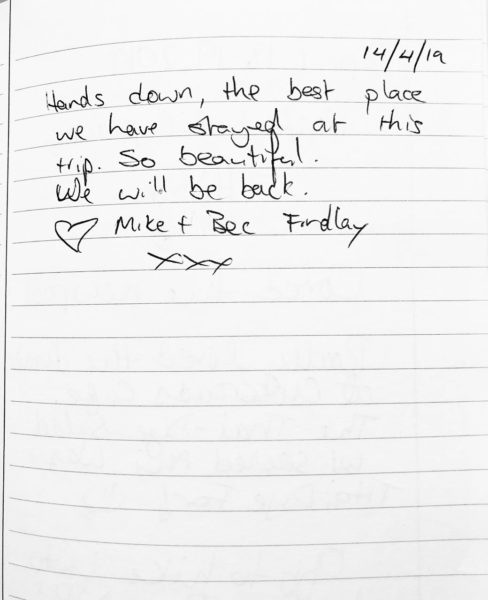 14/4/19
Hands down, the best place
we have stayed at this
trip. So beautiful.
We will be back.
♡ Mike + Bec Findlay
xxx